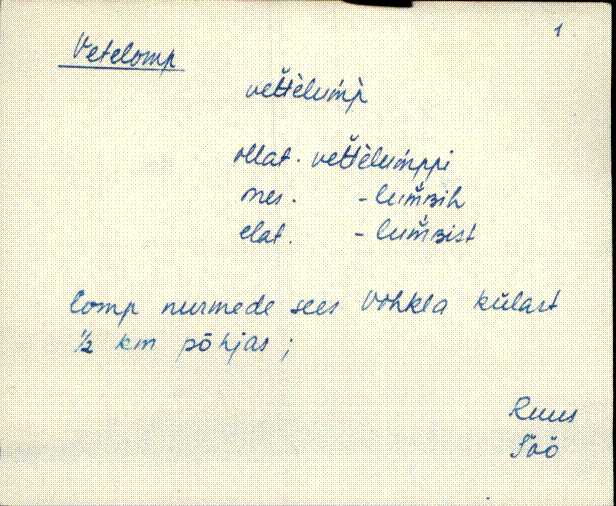 1
Vetelomp
vett̆èlum̀p̀
illat. vett̆èlum̀ppi
ines. -lum̆ʙih
elat. -lum̆ʙist
lomp nurmede sees Vohkla külast
½ km põhjas;
Ruus
Söö